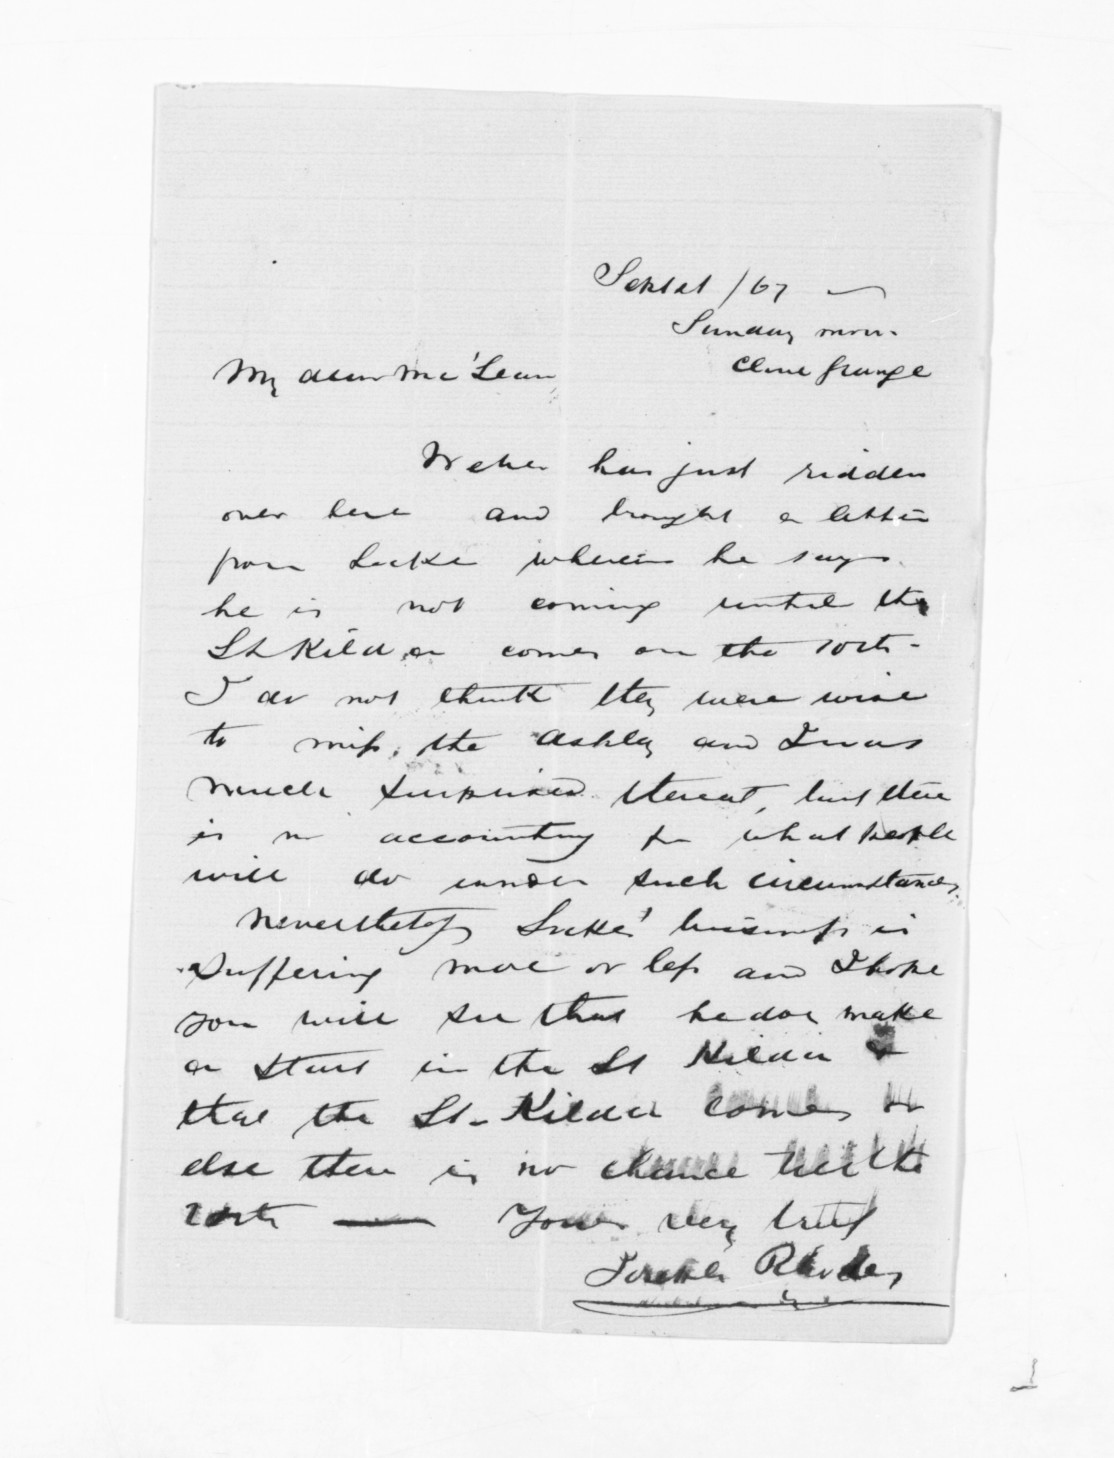 Sept 1st /67
Sunday morn.
Clive Grange
My dear McLean
Weber has just ridden
over here and brought a letter
from Locke wherein he says
he is not coming until the
St Kilda comes on the 10th -
I do not think they were wise
to miss, the Ashley and I was
much surprised thereat, but there
is no accounting for what people
will do under such circumstances.
Nevertheless Locke's business is
suffering more or less and I hope
you will see that he does make
a start in the St Kilda &
that the St. Kilda comes or
else there is no chance till the
20th Yours very truly
Joseph Rhodes
1